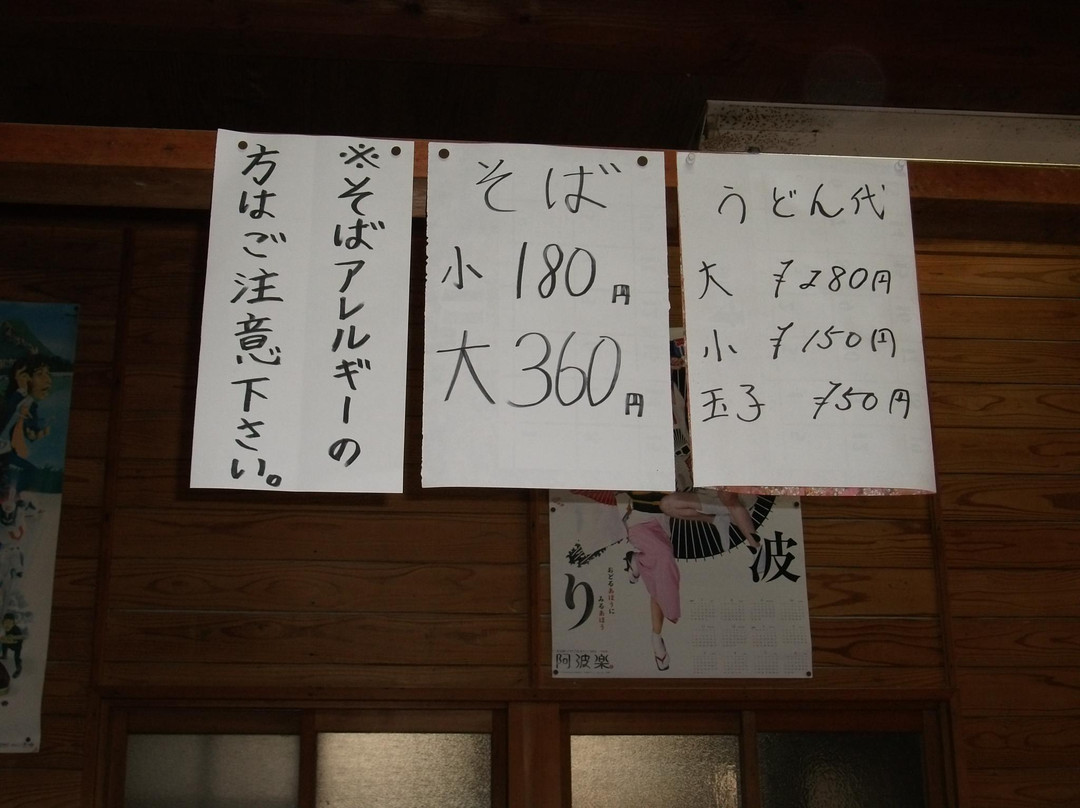 ※そばアレルギーの
方はご注意下さい。
そば
小 180円
大 360円
うどん代
大 ¥280円
小 ¥150円
玉子 ¥50円
波
り
おどるあほうに
みるあほう
阿波樂